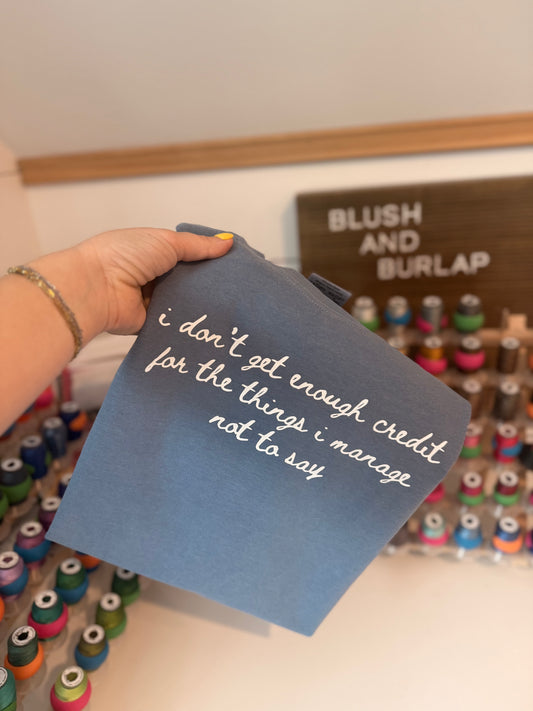 BLUSH
AND
BURLAP
i don't get enough credit
for the things i manage
not to say